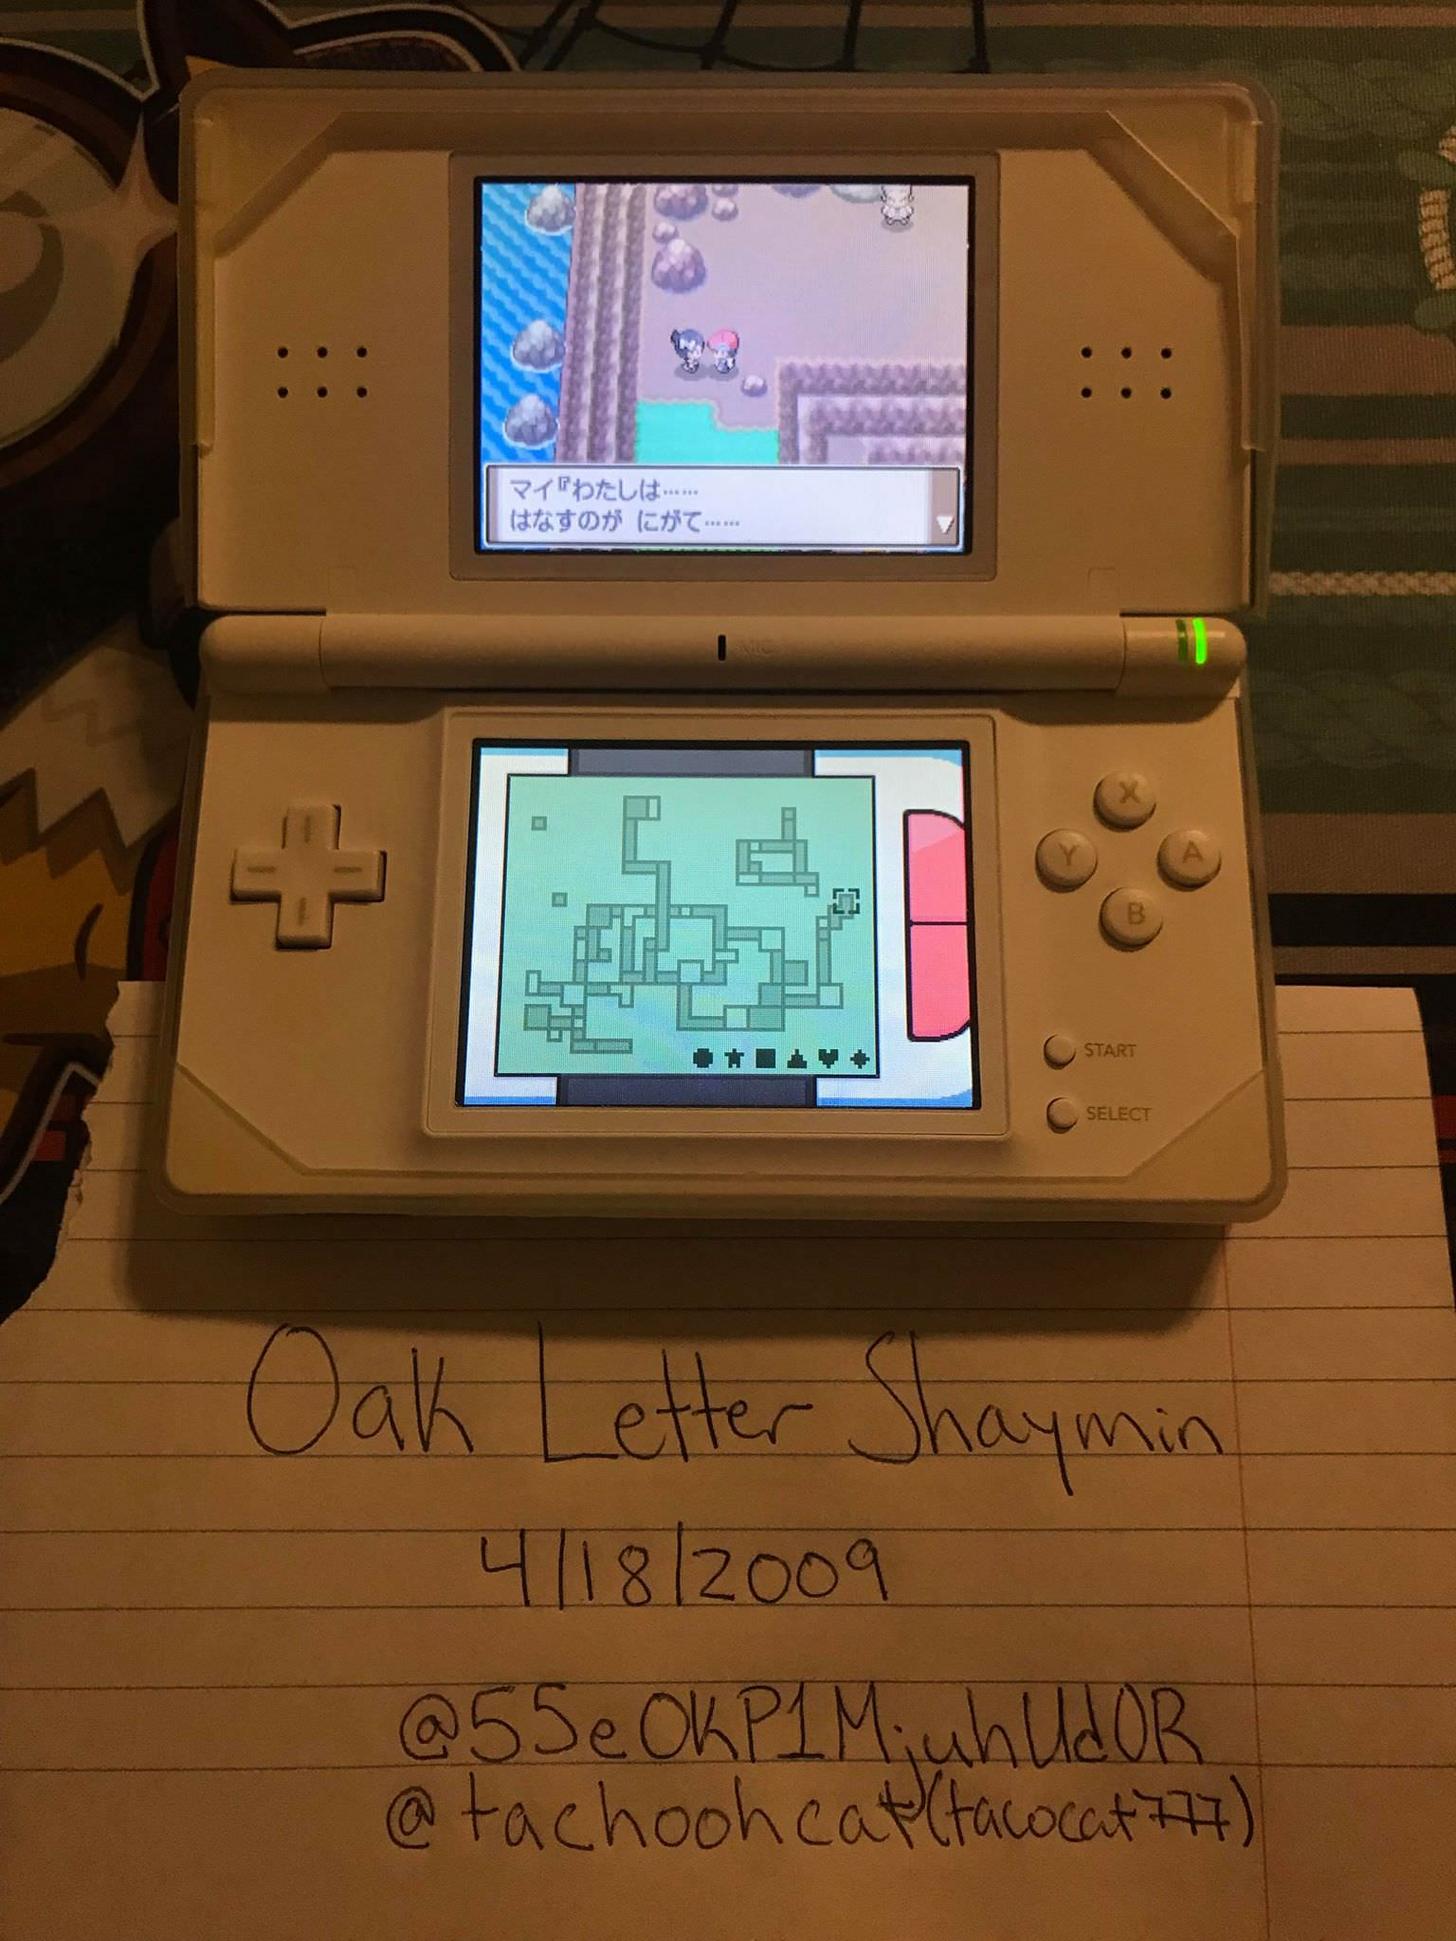 マイ『わたしは……
はなすのが にがて……
MIC
X
Y
A
B
START
SELECT
Oak Letter Shaymin
4/18/2009
@55eOKP1MjuhUdOR
@tachoohcat(tacocat777)